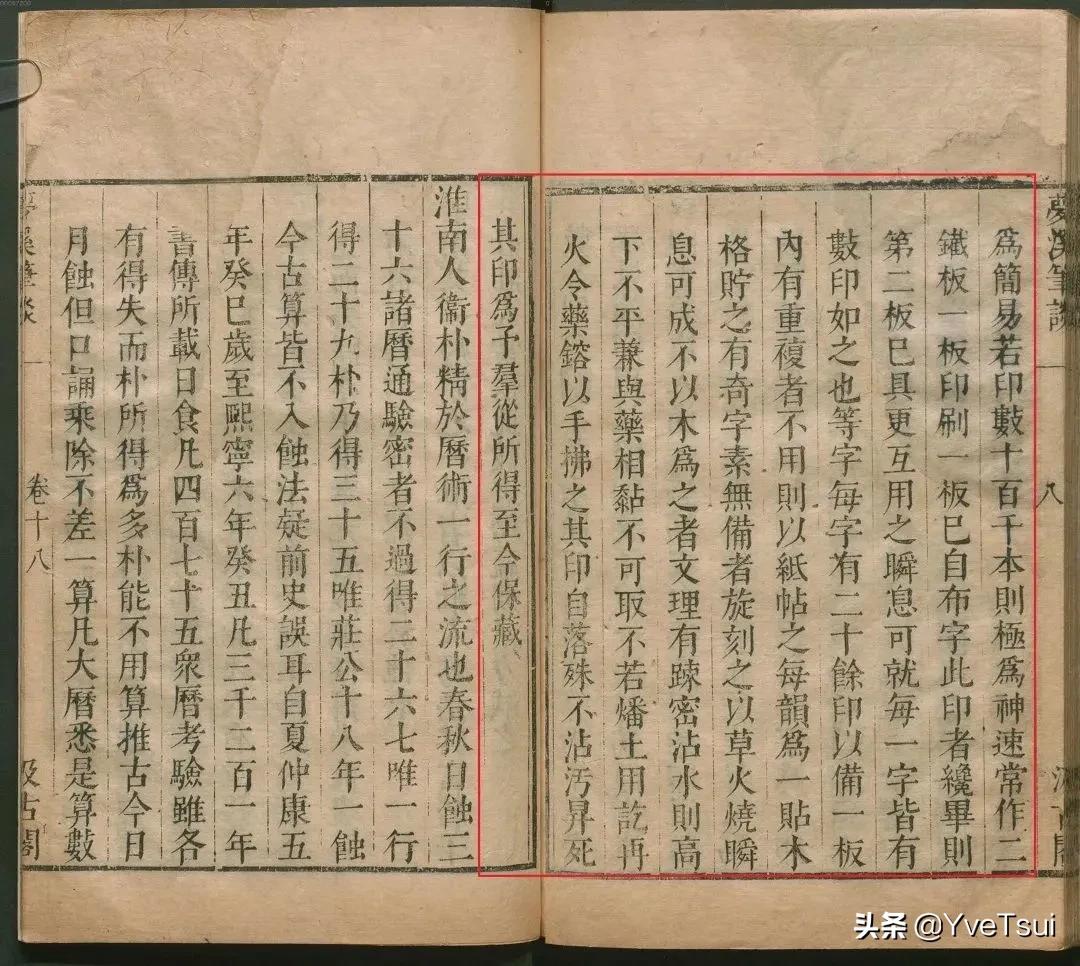 夢溪筆談
一
八
汲古閣
爲簡易若印數十百千本則極爲神速常作二
鐵板一板印刷一板已自布字此印者纔畢則
第二板已具更互用之瞬息可就每一字皆有
數印如之也等字每字有二十餘印以備一板
內有重複者不用則以紙帖之每韻爲一貼木
格貯之有奇字素無備者旋刻之以草火燒瞬
息可成不以木爲之者文理有踈密沾水則高
下不平蒹與藥相黏不可取不若燔土用訖再
火令藥鎔以手拂之其印自落殊不沾汚昇死
其印爲予羣從所得至今保藏
淮南人衞朴精於曆術一行之流也春秋日蝕三
十六諸曆通驗密者不過得二十六七唯一行
得二十九朴乃得三十五唯莊公十八年一蝕
今古算皆不入蝕法疑前史誤耳自夏仲康五
年癸巳歲至熙寧六年癸丑凡三千二百一年
書傳所載日食凡四百七十五衆曆考驗雖各
有得失而朴所得爲多朴能不用算推古今日
月蝕但口誦乘除不差一算凡大曆悉是算數
夢溪筆談
一
卷十八
汲古閣
头条 @YveTsui